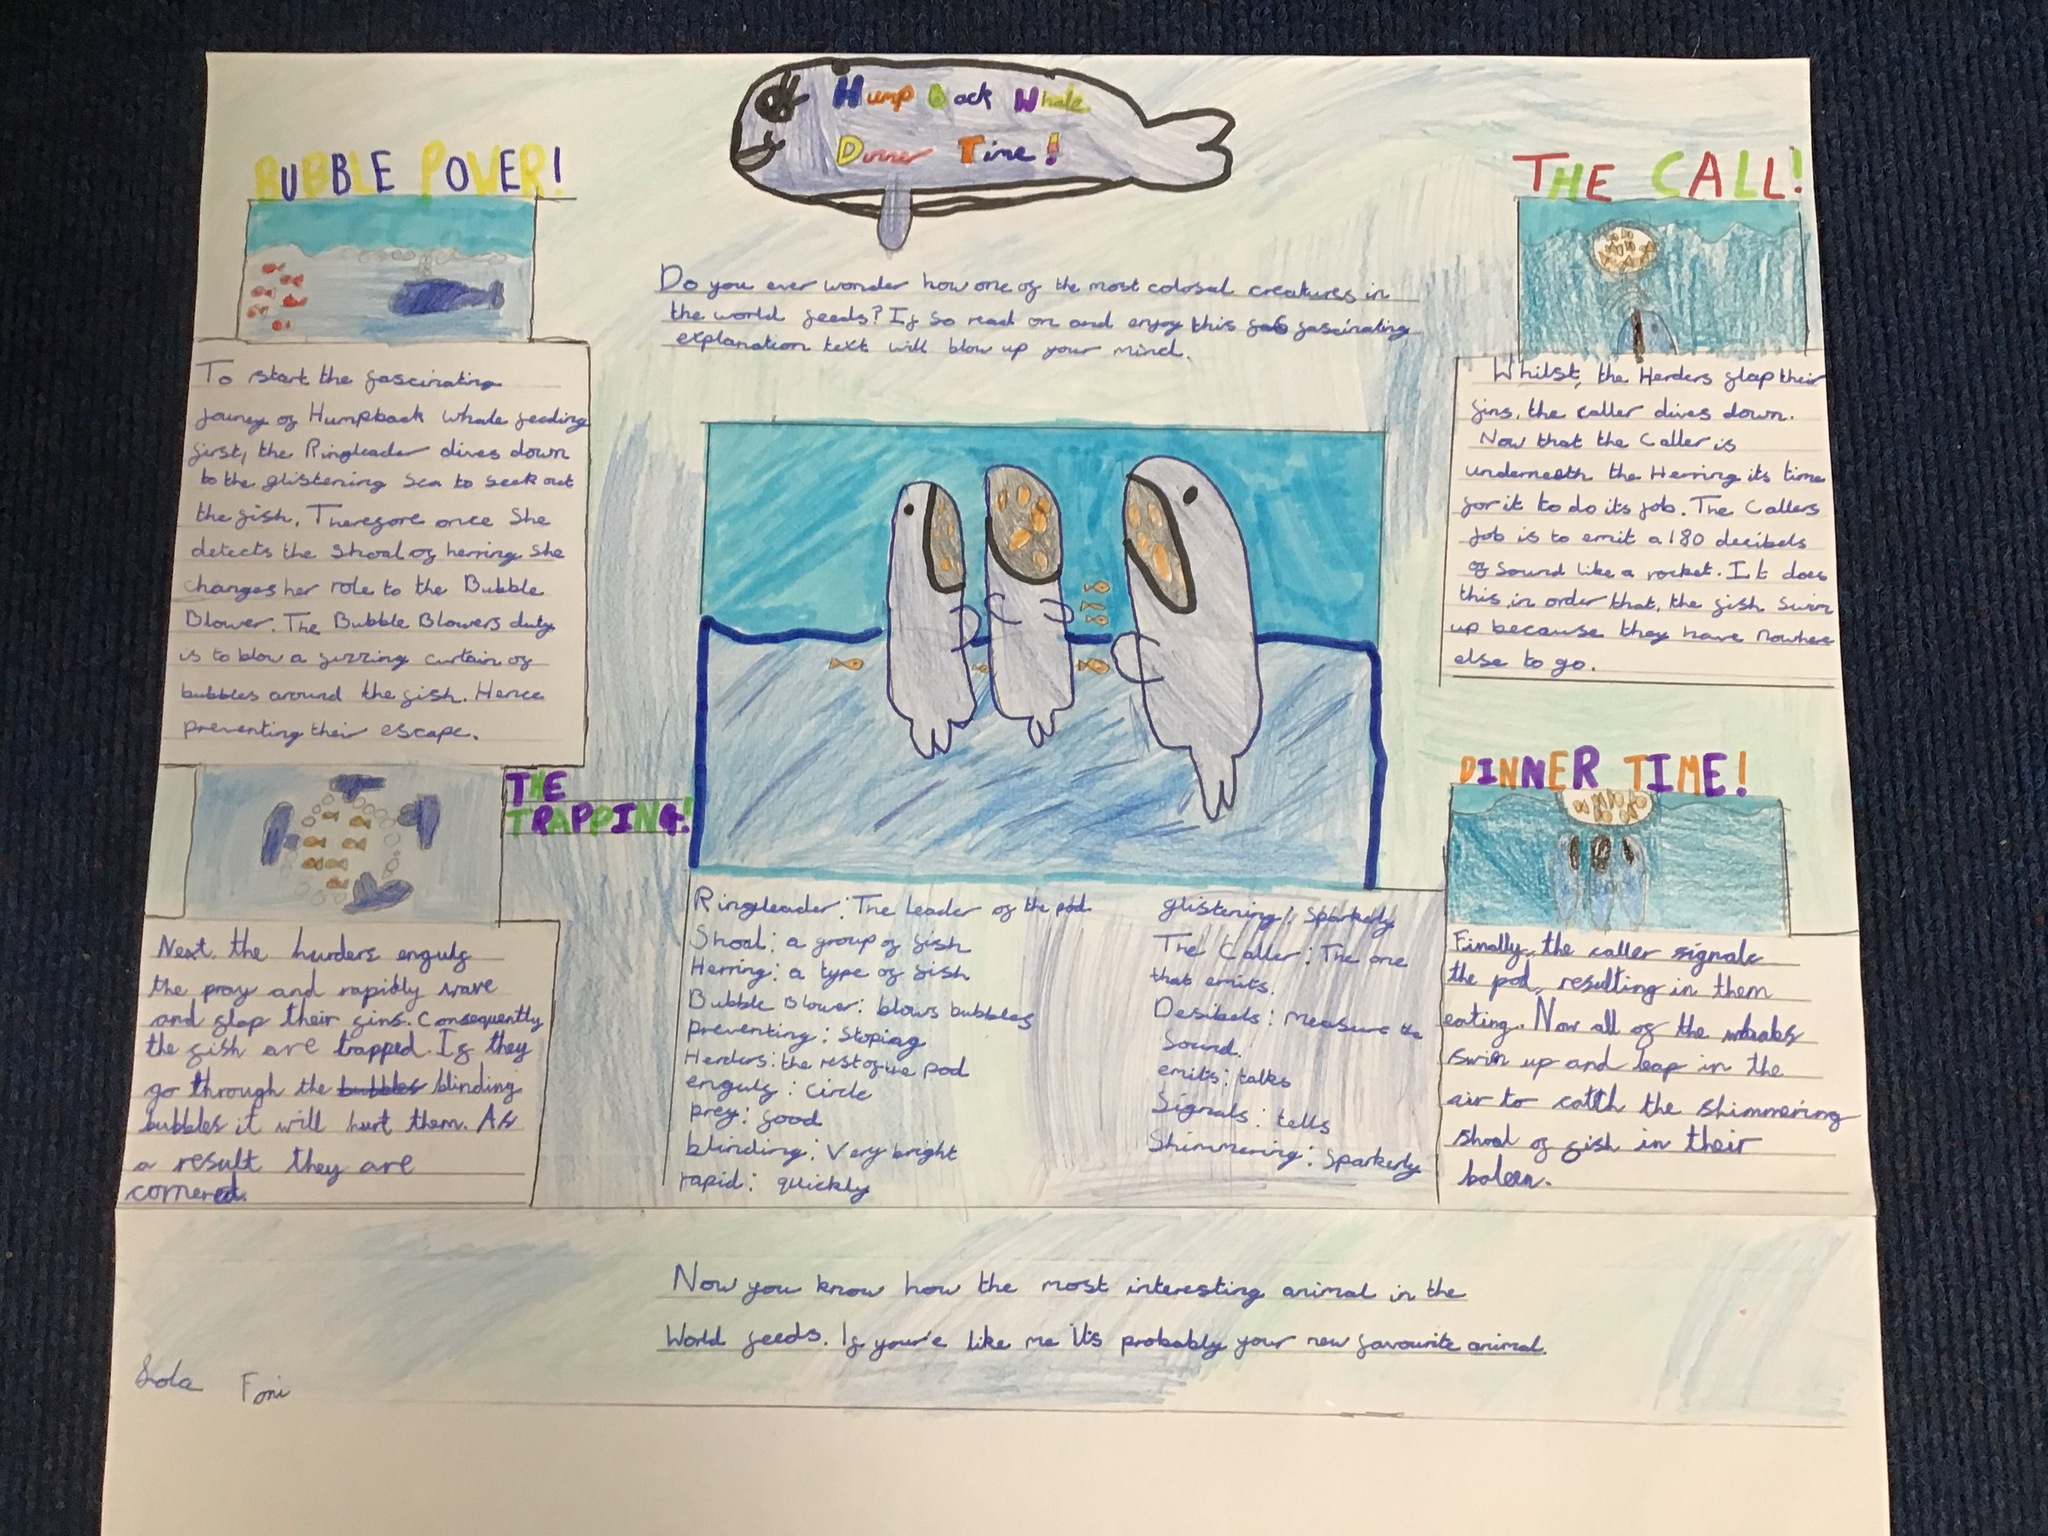 Hump Back Whale
Dinner Time!
Do you ever wonder how one of the most colossal creatures in
the world feeds? If so read on and enjoy this fab fascinating
explanation text will blow up your mind.
BUBBLE POWER!
To start the fascinating
jouney of Humpback Whale feeding
first, the Ringleader dives down
to the glistening sea to seek out
the fish. Therefore once She
detects the shoal of herring she
changes her role to the Bubble
Blower. The Bubble Blowers duty
is to blow a fizzing curtain of
bubbles around the fish. Hence
preventing their escape.
THE
TRAPPING!
Next, the hurders engulf
the pray and rapidly wave
and flap their fins. Consequently
the fish are trapped. If they
go through the bubbles blinding
bubbles it will hurt them. As
a result they are
cornered.
THE CALL!
Whilst, the Herders flap their
fins, the caller dives down.
Now that the Caller is
underneath the Herring its time
for it to do its job. The Callers
job is to emit a 180 decibels
of sound like a rocket. It does
this, in order that, the fish swim
up because they have nowhere
else to go.
DINNER TIME!
Finally, the caller signals
the pod, resulting in them
eating. Now all of the whales
swim up and leap in the
air to catch the shimmering
shoal of fish in their
baleen.
Ringleader: The leader of the pod
Shoal: a group of fish
Herring: a type of fish
Bubble Blower: blows bubbles
preventing: Stoping
Herders: the rest of the pod
engulf: circle
prey: food
blinding: Very bright
rapid: quickly
glistening: sparkerly
The Caller: The one
that emits.
Desibels: measure the
sound.
emits: talks
Signals: tells
Shimmering: sparkerly
Now you know how the most interesting animal in the
World feeds. If your'e like me it's probably your new favourite animal.
Foni